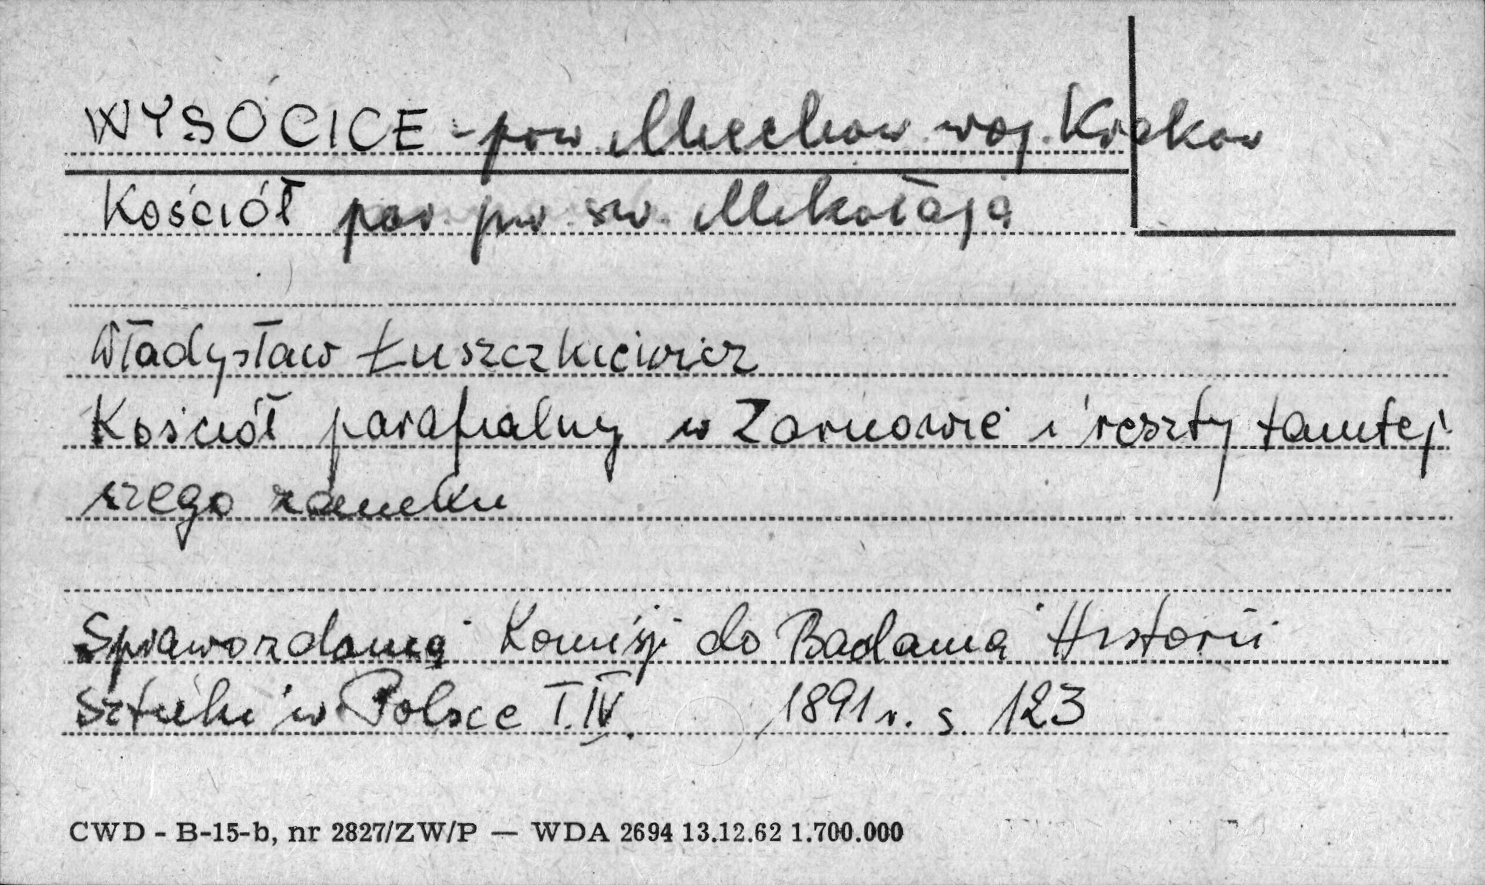 WYSOCICE - pow Miechow woj. Krakow
Kościół par pw. św. Mikołaja
Władysław Łuszczkiewicz
Kościół parafialny w Żarnowie i reszty tamtej
szego zamku
Sprawozdania Komisji do Badania Historii
Sztuki w Polsce T. IV. 1891 r. s. 123
CWD - B-15-b, nr 2827/ZW/P — WDA 2694 13.12.62 1.700.000